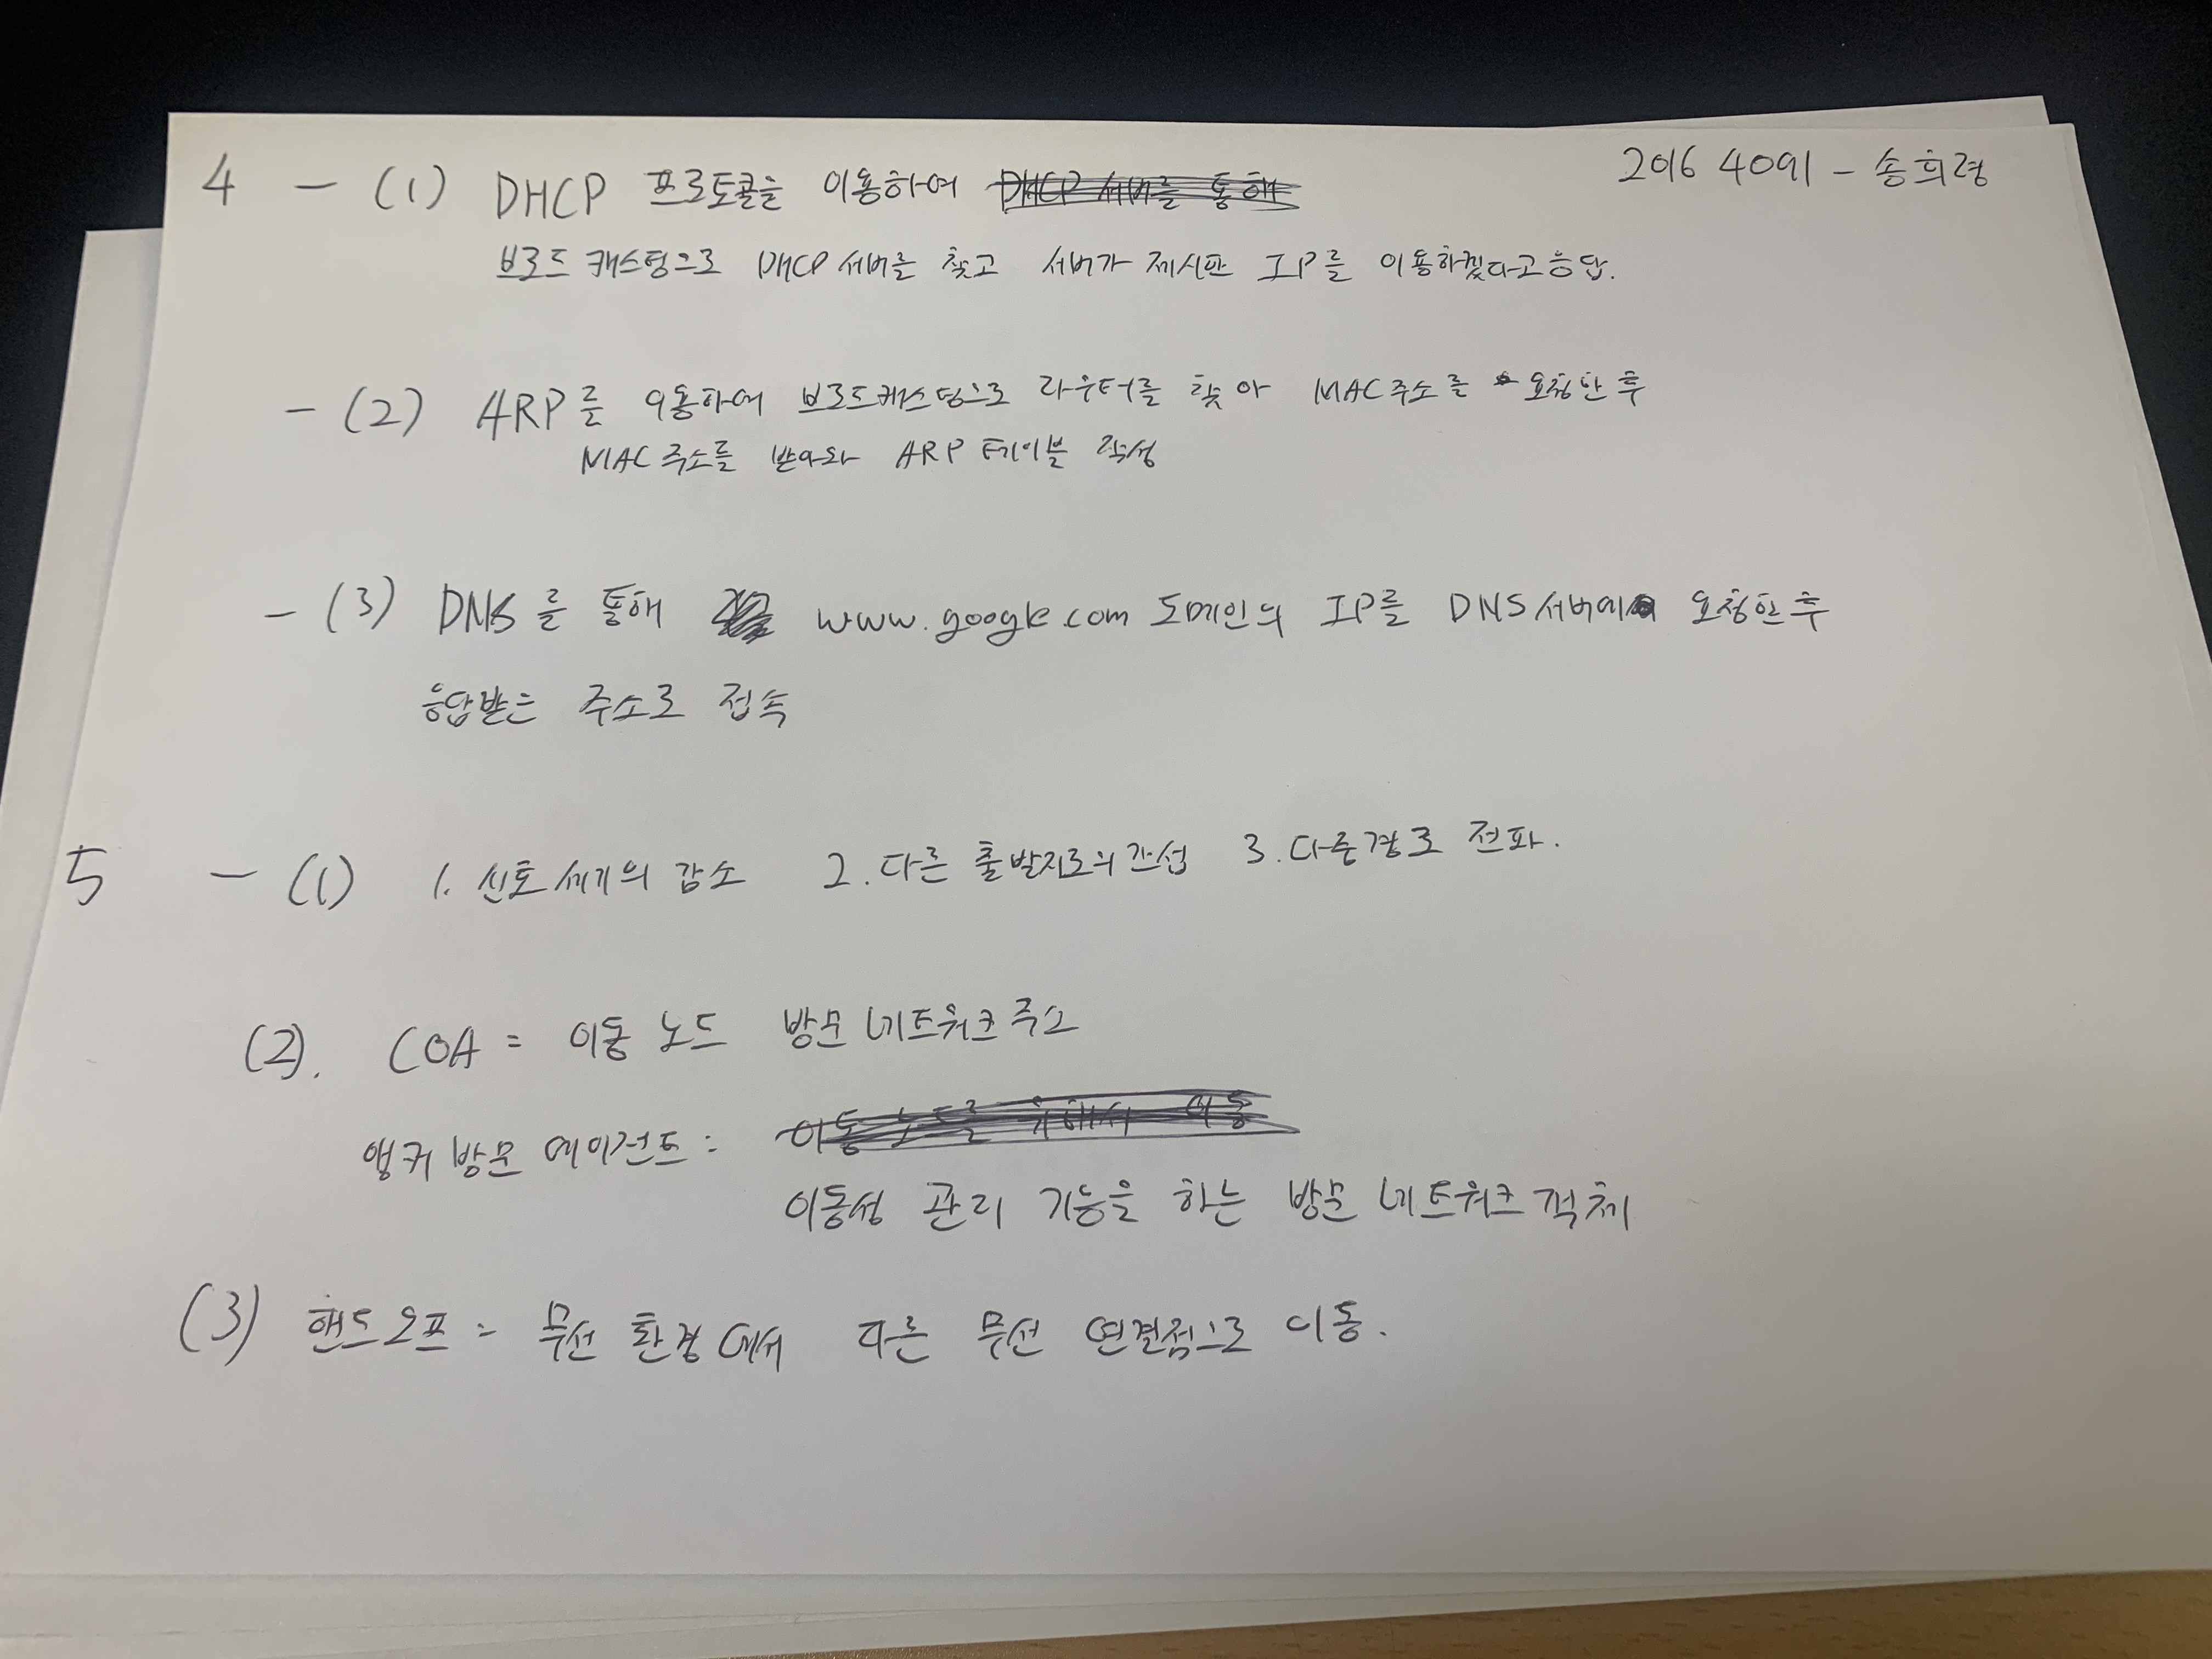 2016 4091 - 송희령
4 - (1) DHCP 프로토콜을 이용하여 DHCP 서버를 통해
브로드 캐스팅으로 DHCP 서버를 찾고 서버가 제시한 IP를 이용하겠다고 응답.
- (2) ARP를 이용하여 브로드캐스팅으로 라우터를 찾아 MAC주소를 요청한 후
MAC주소를 받아와 ARP 테이블 작성
- (3) DNS를 통해 www.google.com 도메인의 IP를 DNS서버에 요청한 후
응답받은 주소로 접속
5 - (1) 1. 신호 세기의 감소 2. 다른 출발지로의 간섭 3. 다중경로 전파.
(2). COA = 이동 노드 방문 네트워크 주소
앵커 방문 에이전트 : 이동 노드를 위해서 이동
이동성 관리 기능을 하는 방문 네트워크 객체
(3) 핸드오프 = 무선 환경에서 다른 무선 연결점으로 이동.